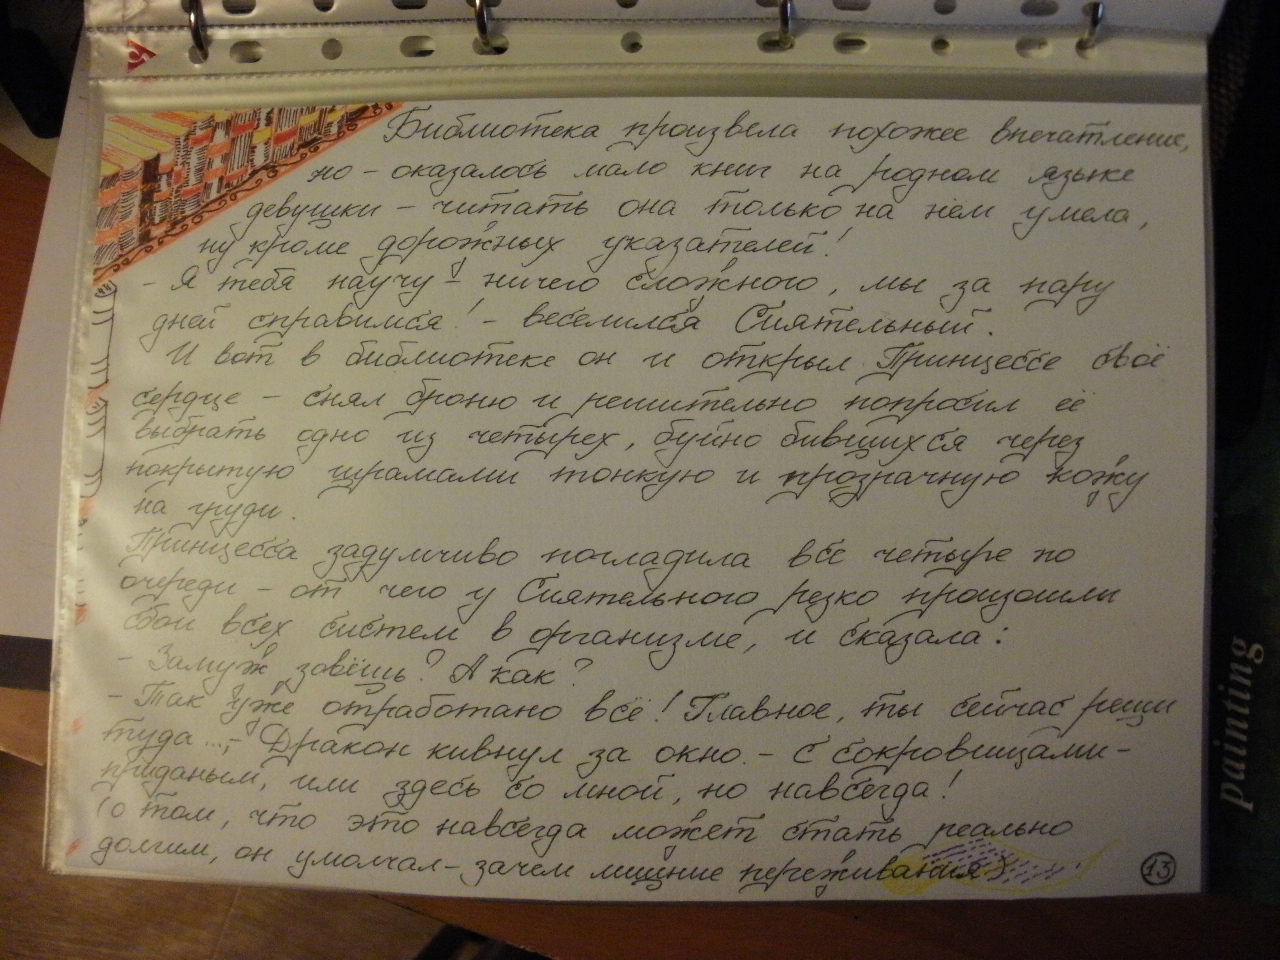 Библиотека произвела похожее впечатление,
но - оказалось мало книг на родном языке
девушки - читать она только на нём умела,
ну кроме дорожных указателей!
- Я тебя научу - ничего сложного, мы за пару
дней справимся! - веселился Сиятельный.
И вот в библиотеке он и открыл Принцессе своё
сердце - снял броню и решительно попросил её
выбрать одно из четырех, буйно бившихся через
покрытую шрамами тонкую и прозрачную кожу
на груди.
Принцесса задумчиво погладила все четыре по
очереди - от чего у Сиятельного резко произошли
сбои всех систем в организме, и сказала:
- Замуж зовёшь? А как?
- Так уже отработано всё! Главное, ты сейчас реши
туда..., - Дракон кивнул за окно. - с сокровищами-
приданым, или здесь со мной, но навсегда!
(о том, что это навсегда может стать реально
долгим, он умолчал - зачем лишние переживания)
13
painting